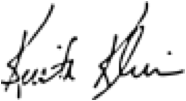 Keith Klein